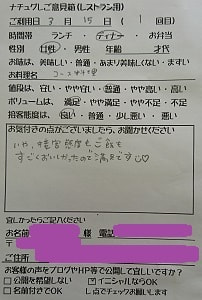 ナチュグレご意見箱(レストラン用)
ご利用日 3 月 15 日 ( 1 回目)
時間帯 ランチ ・ ディナー ・ お弁当
女性 ・ 男性 年齢 才代
お味は、美味しい・普通・あまり美味しくない・まずい
お料理名 コース料理
値段は、安い・やや安い・普通・やや高い・高い
ボリュームは、満足・やや満足・やや不足・不足
接客態度は、良い・普通・少し悪い・悪い
お気付きの点がございましたら、お聞かせください
いや、接客態度もご飯も
すごくおいしかったので満足です
宜しかったらご記入ください
お名前 様 電話
〒
ご住所
お客様の声をブログやHP等で公開して宜しいですか?
□公開を希望しない ☑イニシャルならOK
□名前付きでOK し点でチェックお願いします